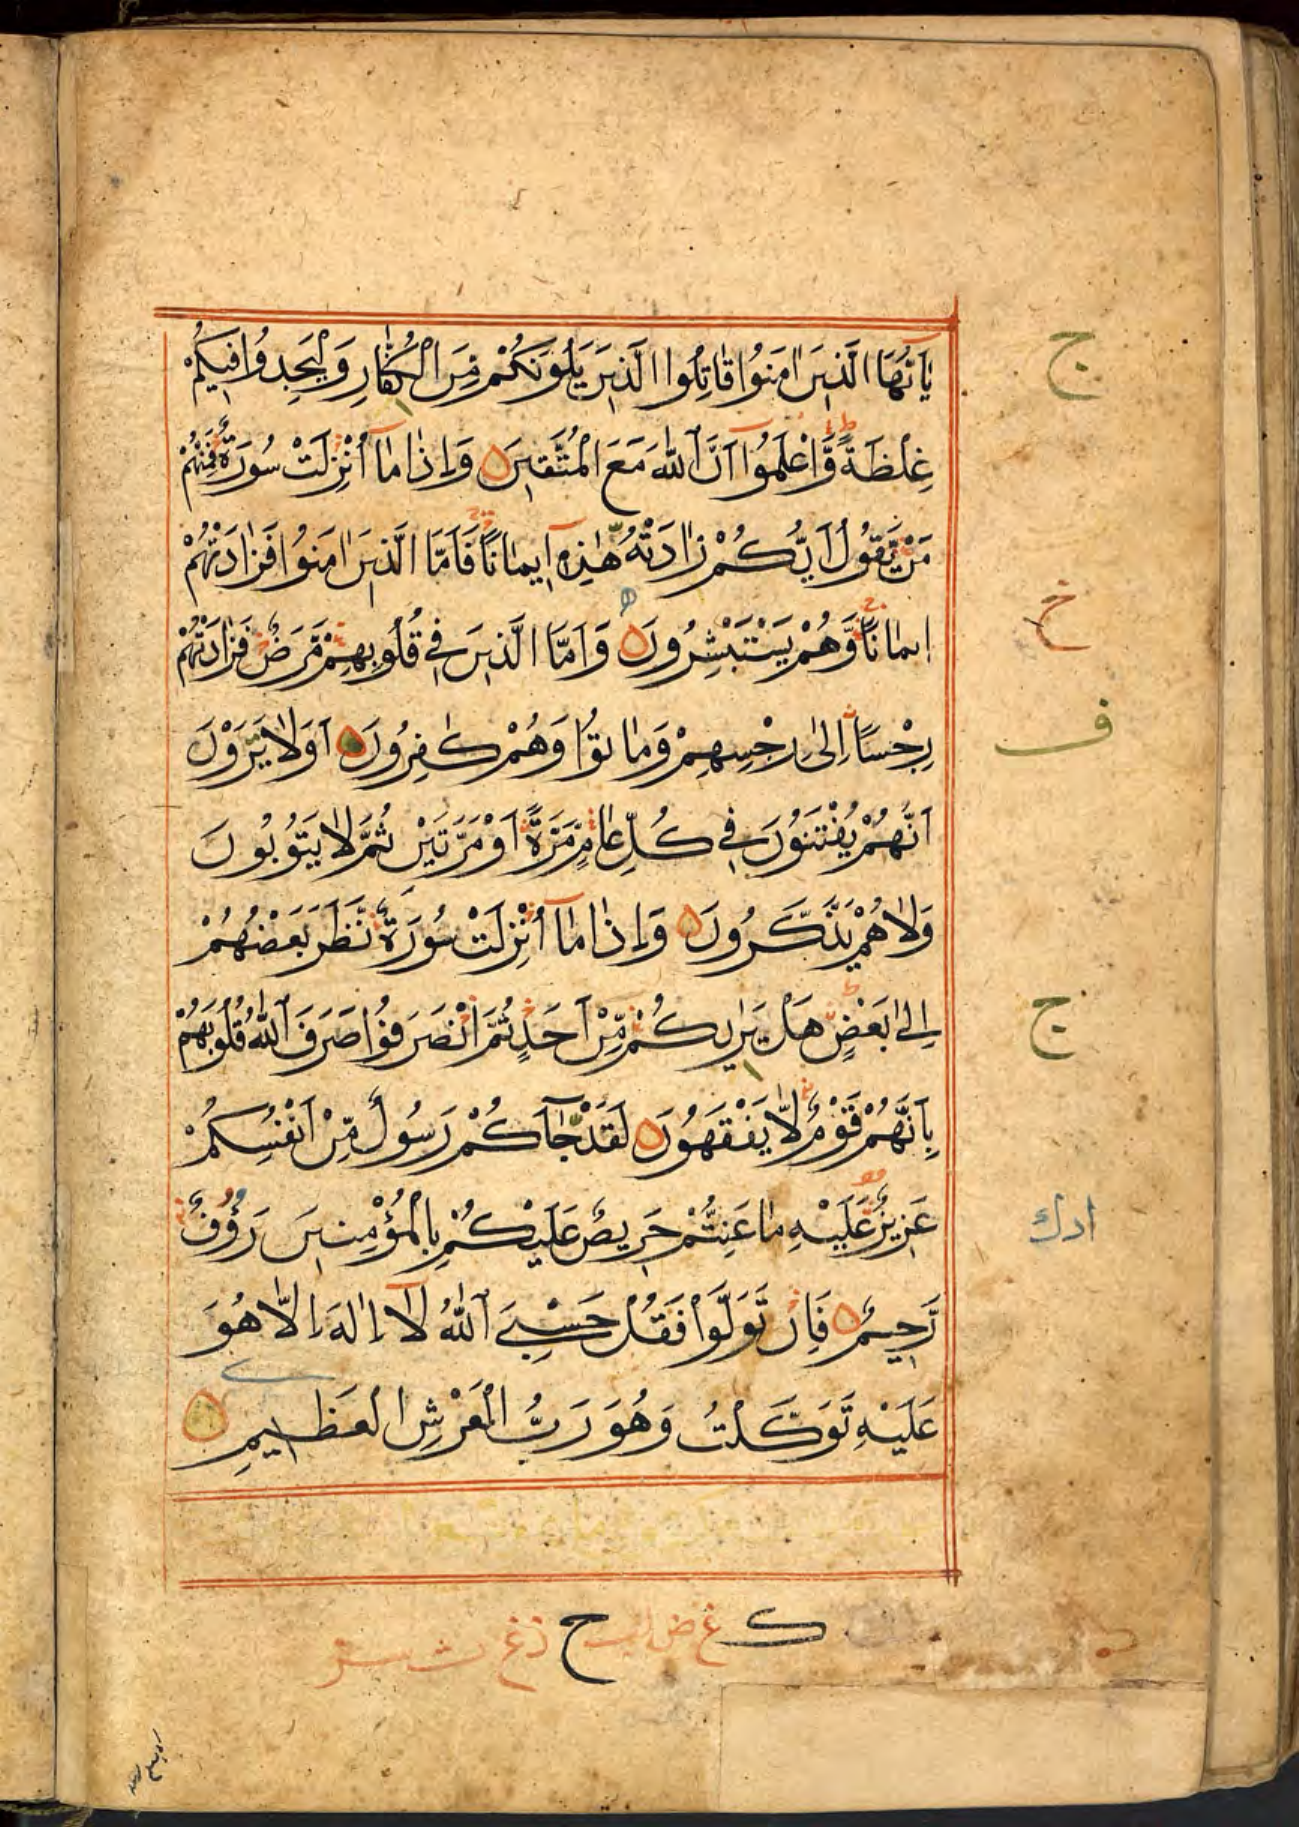 يٰاَيُّهَا الَّذِينَ اٰمَنُوا قٰاتِلُوا الَّذِينَ يَلُونَكُمْ مِنَ الْكُفّٰارِ وَلْيَجِدُوا فِيكُمْ
غِلْظَةً وَّاعْلَمُوٓا اَنَّ اللّٰهَ مَعَ الْمُتَّقِينَ وَاِذٰا مٰآ اُنْزِلَتْ سُورَةٌ فَمِنْهُمْ
مَنْ يَّقُولُ اَيُّكُمْ زٰادَتْهُ هٰذِهٖ اِيمٰانًا فَاَمَّا الَّذِينَ اٰمَنُوا فَزٰادَتْهُمْ
اِيمٰانًا وَّهُمْ يَسْتَبْشِرُونَ وَاَمَّا الَّذِينَ فِي قُلُوبِهِمْ مَّرَضٌ فَزٰادَتْهُمْ
رِجْسًا اِلٰى رِجْسِهِمْ وَمٰاتُوا وَهُمْ كٰافِرُونَ اَوَلٰا يَرَوْنَ
اَنَّهُمْ يُفْتَنُونَ فِي كُلِّ عٰامٍ مَرَّةً اَوْ مَرَّتَيْنِ ثُمَّ لٰا يَتُوبُونَ
وَلٰا هُمْ يَذَّكَّرُونَ وَاِذٰا مٰآ اُنْزِلَتْ سُورَةٌ نَّظَرَ بَعْضُهُمْ
اِلٰى بَعْضٍ هَلْ يَرٰيكُمْ مِّنْ اَحَدٍ ثُمَّ انْصَرَفُوا صَرَفَ اللّٰهُ قُلُوبَهُمْ
بِاَنَّهُمْ قَوْمٌ لّٰا يَفْقَهُونَ لَقَدْ جٰآءَكُمْ رَسُولٌ مِّنْ اَنْفُسِكُمْ
عَزِيزٌ عَلَيْهِ مٰا عَنِتُّمْ حَرِيصٌ عَلَيْكُمْ بِالْمُؤْمِنِينَ رَؤُفٌ
رَّحِيمٌ فَاِنْ تَوَلَّوْا فَقُلْ حَسْبِيَ اللّٰهُ لٰآ اِلٰهَ اِلّٰا هُوَ
عَلَيْهِ تَوَكَّلْتُ وَهُوَ رَبُّ الْعَرْشِ الْعَظِيمِ
ج
خ
ف
ج
ادك
ك غ ح